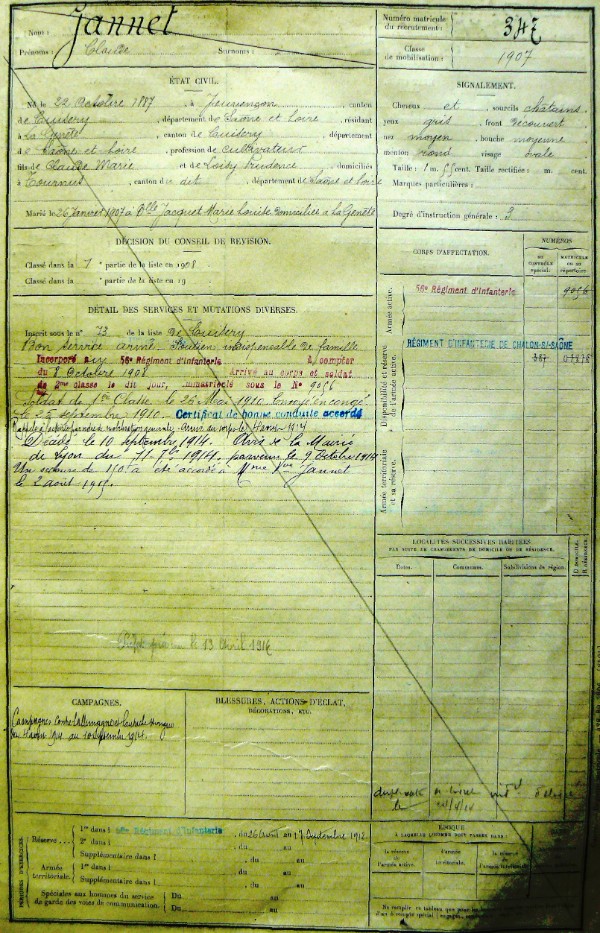 Nom : Jannet
Prénoms : Claude Surnoms :
Numéro matricule du recrutement : 347
Classe de mobilisation : 1907
ÉTAT CIVIL.
Né le 22 Octobre 1887, à canton
de Cuisery, département de Saône et Loire, résidant
à La Genête, canton de Cuisery, département
de Saône et Loire, profession de Cultivateur
fils de Claude Marie et de Prudence, domiciliés
à Tournus, canton du dit, département de Saône et Loire
Marié le 26 Janvier 1907 à Dlle Jacquet Marie Louise domiciliée à La Genête
SIGNALEMENT.
Cheveux et sourcils châtains
yeux gris, front découvert
nez moyen, bouche moyenne
menton rond, visage ovale
Taille : 1 m. cent. Taille rectifiée : m. cent.
Marques particulières :
Degré d'instruction générale : 3
DÉCISION DU CONSEIL DE RÉVISION.
Classé dans la 1e partie de la liste en 1908
Classé dans la partie de la liste en 19
DÉTAIL DES SERVICES ET MUTATIONS DIVERSES.
Inscrit sous le n° 73 de la liste de Cuisery
Bon service armé. Soutien indispensable de famille
Incorporé au 56e Régiment d'Infanterie à compter
du 8 Octobre 1908 Arrivé au corps et soldat
de 2me classe le dit jour, immatriculé sous le No 9056
Soldat de 1re Classe le 26 Mai 1910. Envoyé en congé
le 25 septembre 1910. Certificat de bonne conduite accordé
Décédé le 10 septembre 1914. Avis de la Mairie
de Lyon du 11 7bre 1914 parvenu le 9 Octobre 1914
Un secours de 150f a été accordé à Mme Vve Jannet
le 2 août 1915.
le 13 Avril 1916
CORPS D'AFFECTATION.
NUMÉROS
AU CONTRÔLE spécial.
MATRICULE OU AU répertoire
Armée active.
56e Régiment d'Infanterie 9056
Disponibilité et réserve de l'armée active.
RÉGIMENT D'INFANTERIE DE CHALON-S/-SAÔNE
Armée territoriale et sa réserve.
LOCALITÉS SUCCESSIVES HABITÉES
PAR SUITE DE CHANGEMENTS DE DOMICILE OU DE RÉSIDENCE.
Dates. Communes. Subdivisions de région. D domicile. R résidence.
CAMPAGNES.
Campagnes contre l'Allemagne et l'Autriche Hongrie
du 4 août 1914 au 10 septembre 1914.
BLESSURES, ACTIONS D'ÉCLAT,
DÉCORATIONS, ETC.
PÉRIODES D'EXERCICES
Réserve 1re dans l 56e Régiment d'Infanterie, du 26 août au 17 septembre 1912.
2e dans l , du au
Supplémentaire dans l , du au
Armée territoriale. 1re dans l , du au
Supplémentaire dans l , du au
Spéciales aux hommes du service de garde des voies de communication. Du au
Du au
ÉPOQUE
À LAQUELLE L'HOMME DOIT PASSER DANS :
la réserve de l'armée active.
l'armée territoriale.
la réserve de l'armée territoriale